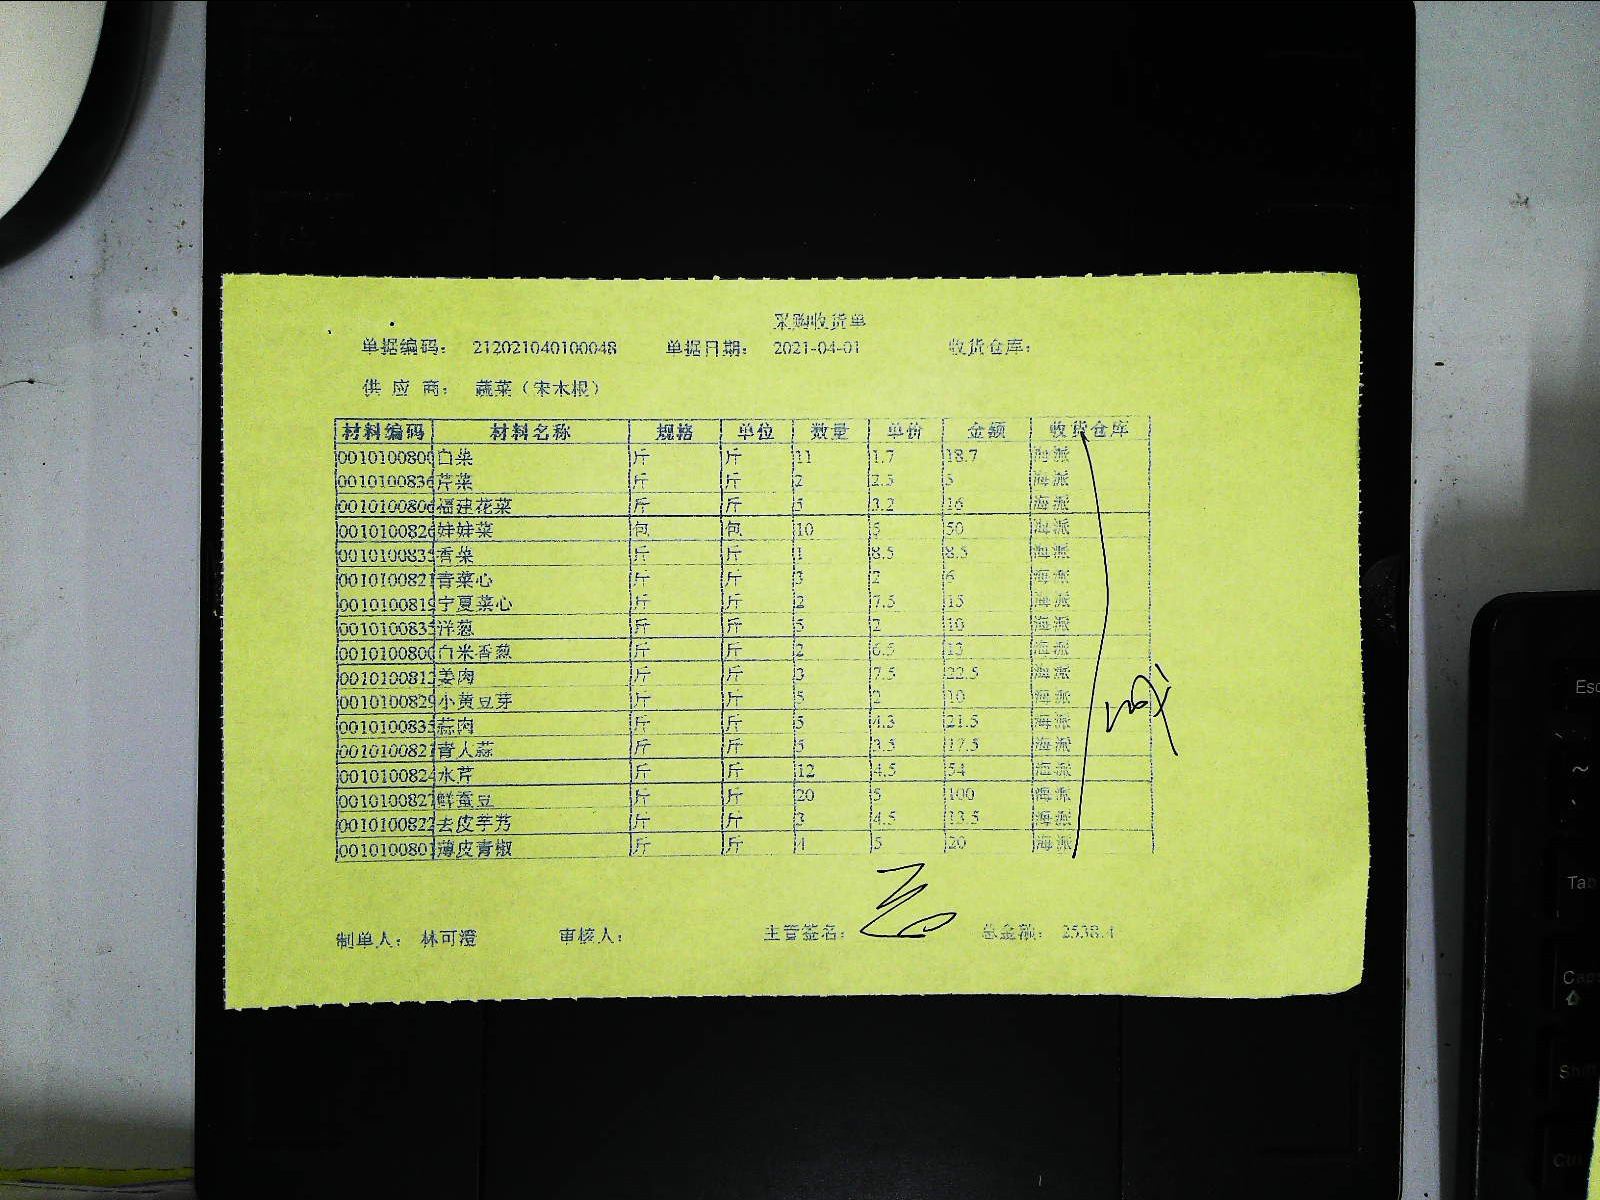 采购收货单
单据编码： 212021040100048 单据日期： 2021-04-01 收货仓库：
供 应 商： 蔬菜（宋木根）
材料编码 材料名称 规格 单位 数量 单价 金额 收货仓库
0010100800 白菜 斤 斤 11 1.7 18.7 海派
0010100836 芹菜 斤 斤 2 2.5 5 海派
0010100806 福建花菜 斤 斤 5 3.2 16 海派
0010100826 娃娃菜 包 包 10 5 50 海派
0010100835 香菜 斤 斤 1 8.5 8.5 海派
0010100821 青菜心 斤 斤 3 2 6 海派
0010100819 宁夏菜心 斤 斤 2 7.5 15 海派
0010100835 洋葱 斤 斤 5 2 10 海派
0010100800 白米香葱 斤 斤 2 6.5 13 海派
0010100813 姜肉 斤 斤 3 7.5 22.5 海派
0010100829 小黄豆芽 斤 斤 5 2 10 海派
0010100835 蒜肉 斤 斤 5 4.3 21.5 海派
0010100821 青大蒜 斤 斤 5 3.5 17.5 海派
0010100824 水芹 斤 斤 12 4.5 54 海派
0010100827 鲜蚕豆 斤 斤 20 5 100 海派
0010100822 去皮芋艿 斤 斤 3 4.5 13.5 海派
0010100801 薄皮青椒 斤 斤 4 5 20 海派
制单人： 林可澄 审核人： 主管签名： 总金额： 2538.4
Esc
~
Tab
Caps
Shift
Ctrl